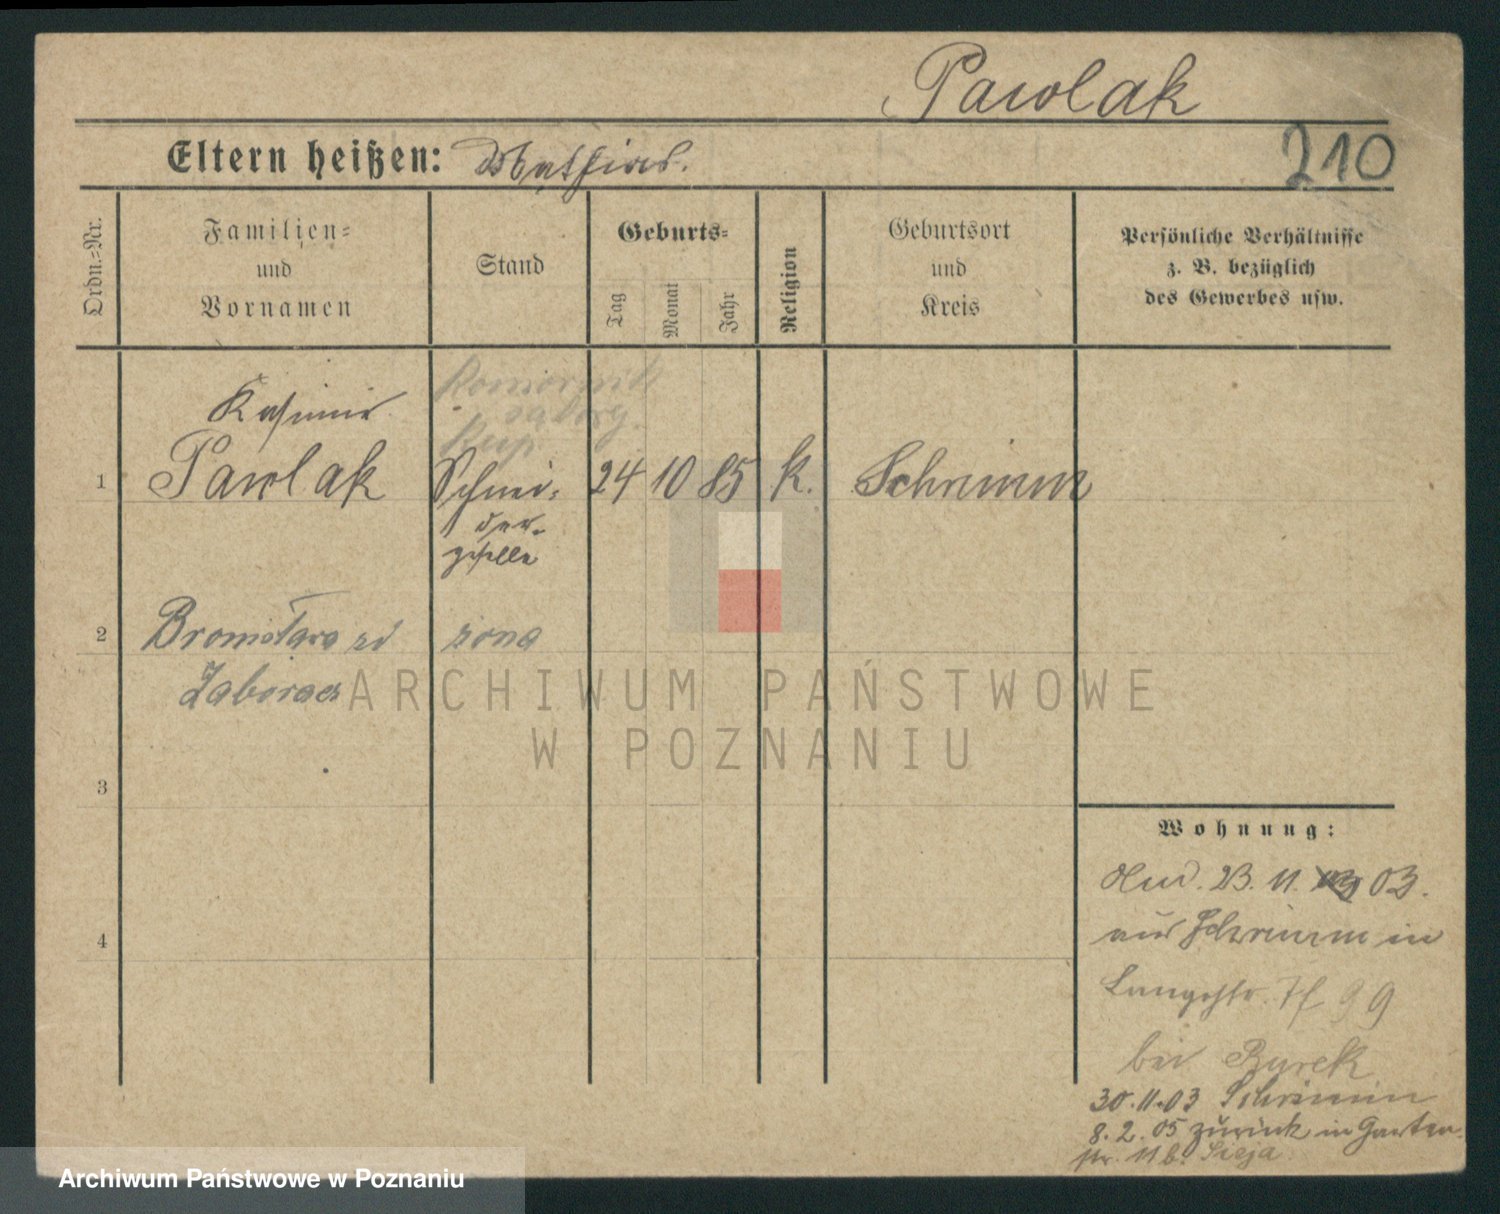 Pawlak
210
Eltern heißen: Mathias.
Ordn.-Nr.
Familien- und Vornamen
Stand
Geburts-
Tag
Monat
Jahr
Religion
Geburtsort und Kreis
Persönliche Verhältnisse z. B. bezüglich des Gewerbes usw.
Komornik
Kasimir
1 Pawlak Schnei- 24 10 85 K. Schrimm
der-
geselle
2 żona
3
4
Wohnung:
23. 11. 03.
aus Schrimm in
Langestr. 99
bei Burek
30.11.03 Schrimm
8. 2. 05 zurück in Garten
str. 11 b.
ARCHIWUM PAŃSTWOWE
W POZNANIU
Archiwum Państwowe w Poznaniu